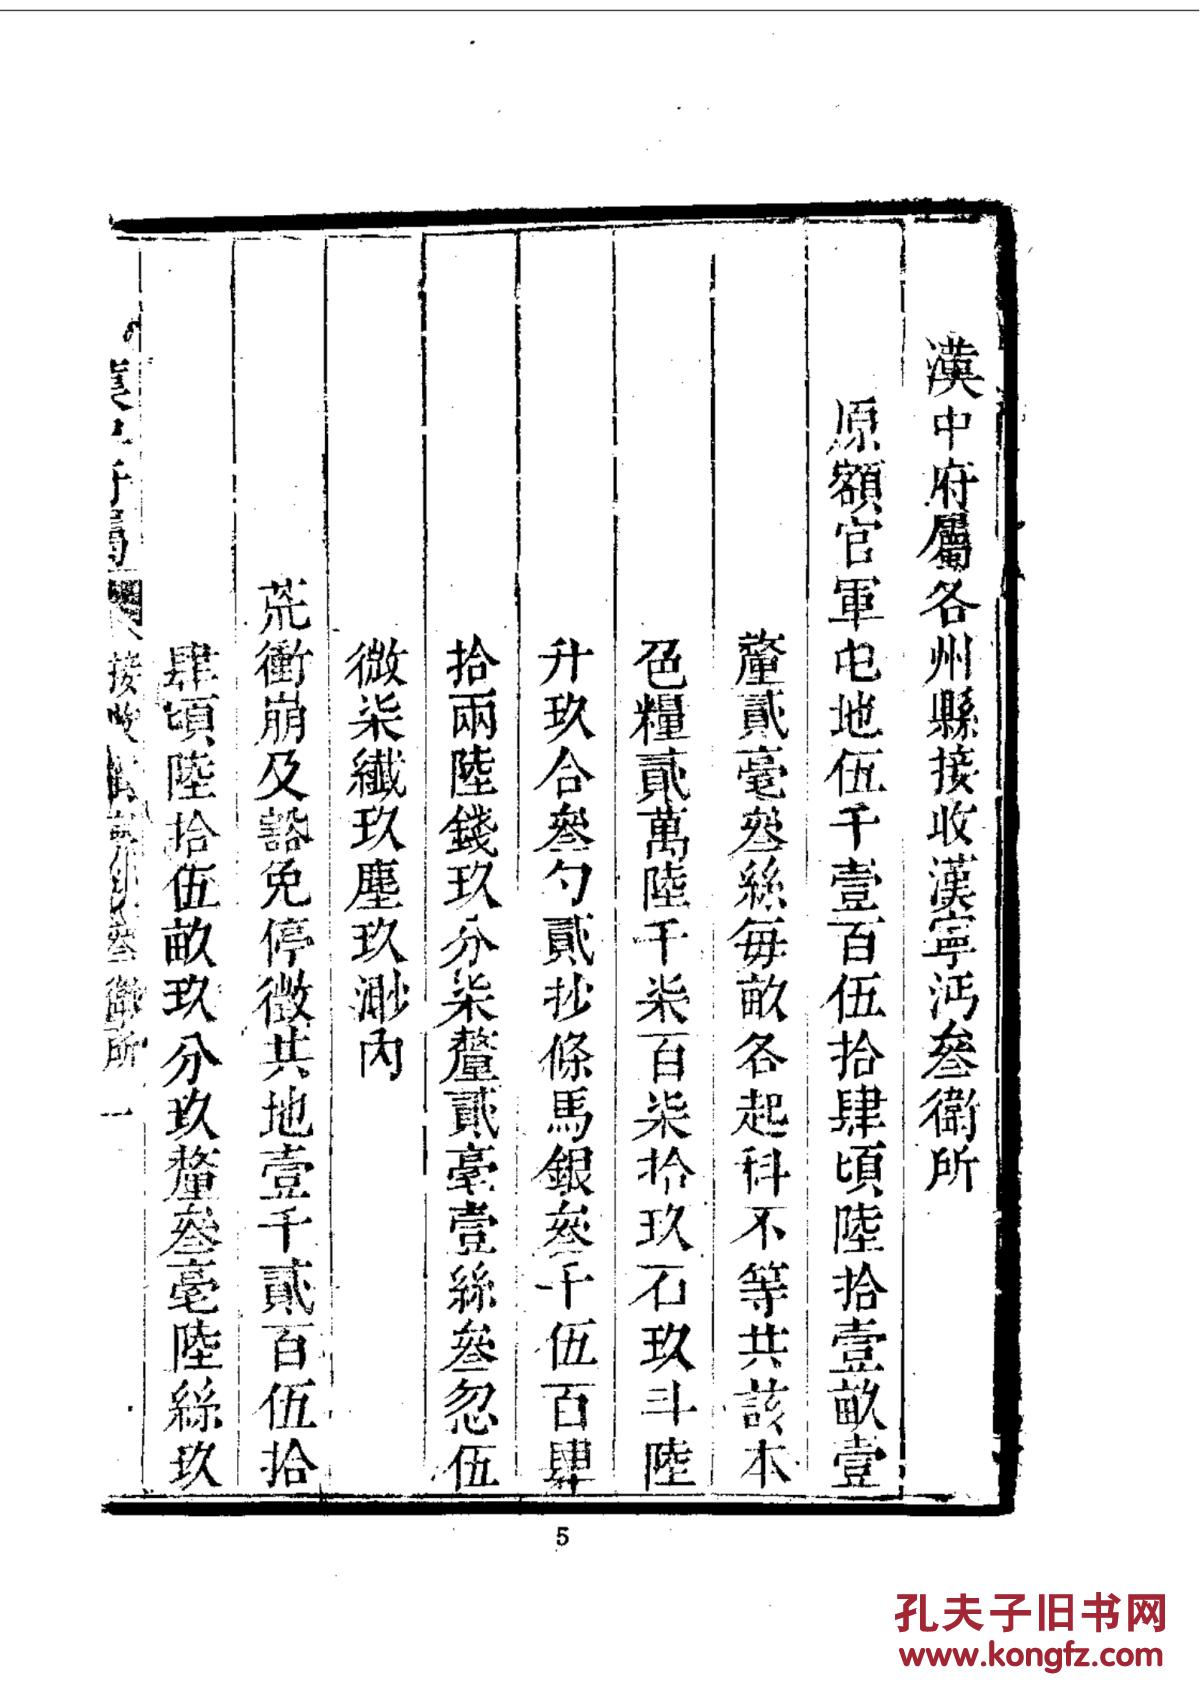 漢中府屬各州縣接收漢寧沔叄衛所
原額官軍屯地伍千壹百伍拾肆頃陸拾壹畝壹
釐貳毫叄絲每畝各起科不等共該本
色糧貳萬陸千柒百柒拾玖石玖斗陸
升玖合叄勺貳抄條馬銀叄千伍百肆
拾兩陸錢玖分柒釐貳毫壹絲叄忽伍
微柒纖玖塵玖渺內
荒衝崩及豁免停徵共地壹千貳百伍拾
肆頃陸拾伍畝玖分玖釐叄毫陸絲玖
漢中府屬 接收漢寧沔叄衛所 一
5
孔夫子旧书网
www.kongfz.com